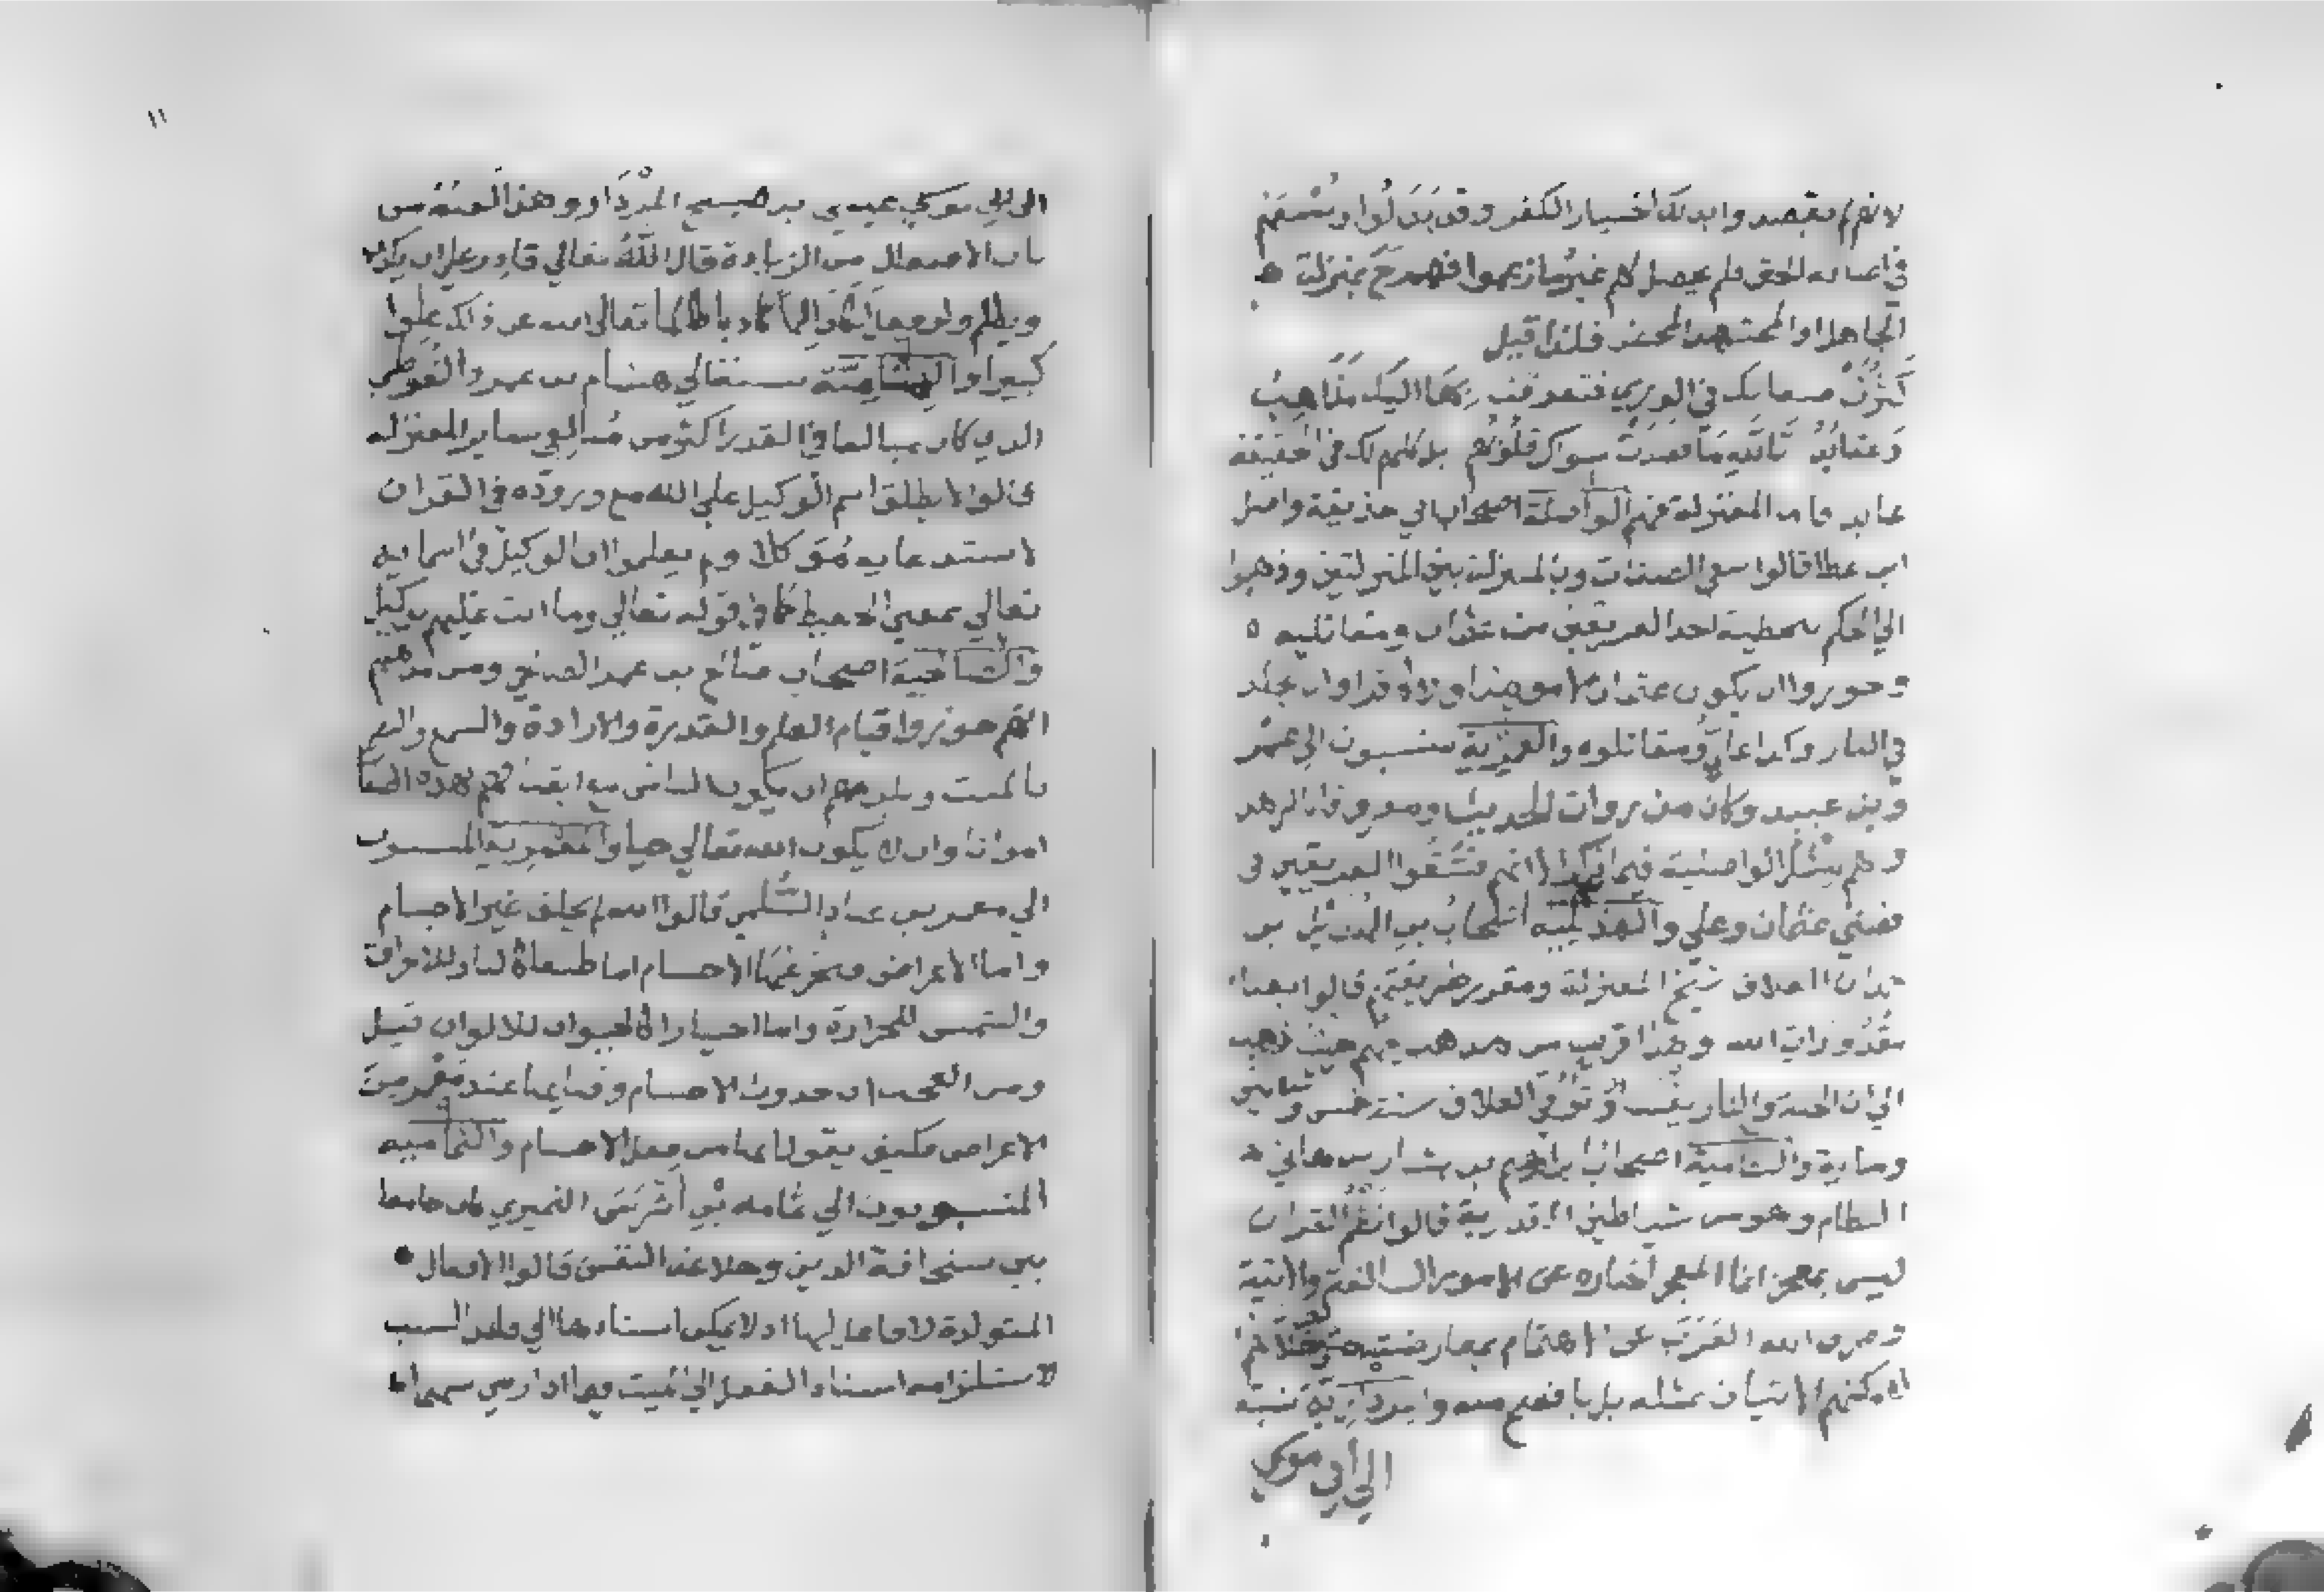 لانهم لم يقصدوا بذلك اختيار الكفر وقد بذلوا وسعهم
في اصابه الحق فلم يحصل لهم غير ما زعموا فهم بمنزلة
الجاهل او المجتهد المخطئ فلذا قيل
كثرت صفاتك في الوري فتعرفت بها اليك مذاهب
وعقايد تالله ما قصدت سواك قلوبهم بل كلهم لك في الحقيقة
عابد فاما المعتزلة فمنهم الواصلية اصحاب ابي حذيفة واصل
ابن عطا قالوا بنفي الصفات وبالمنزلة بين المنزلتين وذهبوا
الي الحكم بتخطية احد الفريقين من عثمان ومقاتليه
وجوزوا ان يكون عثمان لا مومنا ولا كافرا وان يخلد
في النار وكذا علي ومقاتلوه والعمرية ينسبون الي عمر
وبن عبيد وكان من روات الحديث ومعروفا بالزهد
وهم مثل الواصلية فيما ذكر الا انهم فسقوا الفريقين في
قضيتي عثمان وعلي والهذيلية اصحاب بو الهذيل بن
حمدان العلاف شيخ المعتزلة ومقرر طريقتهم قالوا بفناء
مقدورات الله وهذا قريب من مذهب جهم حيث ذهب
الي ان الجنة والنار يفنيان وتوفي العلاف سنة خمس وثلاثين
ومايه والنظامية اصحاب ابراهيم بن سيار بن هاني
النظام وهو من شياطين القدرية قالوا نظم القران
ليس بمعجز انما المعجز اخباره عن الامور السالفة والاتية
وصرف الله العرب عن الاهتمام بمعارضته
لامكنهم الاتيان بمثله بل بافصح منه والمردارية نسبة
الي ابي موسي
الي ابي موسي عيسي بن صبيح المزدار وهذا لقبه من
باب الافتعال من الزيادة قال الله تعالي قادر علي ان يكذب
ويظلم ولو فعل لكان الها كاذبا ظالما تعالي الله عن ذلك علوا
كبيرا والهشامية نسبة الي هشام بن عمرو الفوطي
الذي كان مبالغا في القدر اكثر من مبالغة ساير المعتزله
قالوا لا يطلق اسم الوكيل علي الله مع وروده في القران
لاستدعايه موكلا ولم يعلموا ان الوكيل في اسمايه
تعالي بمعني الحفيظ كما في قوله تعالي وما انت عليهم بوكيل
والصالحية اصحاب صالح بن عمر الصالحي ومن مذهبهم
انهم جوزوا قيام العلم والقدرة والارادة والسمع والبصر
بالميت ويلزمهم ان يكون الناس مع اتصافهم بهذه الصفا
امواتا وان لا يكون الله تعالي حيا والمعمرية المنسوب
الي معمر بن عباد السلمي قالوا الله لم يخلق غير الاجسام
واما الاعراض فتخترعها الاجسام اما طبعا كالنار للاحراق
والشمس للحرارة واما اختيارا كالحيوان للالوان قيل
ومن العجب ان حدوث الاجسام وفنايها عند معمر من
الاعراض فكيف يقول انها من فعل الاجسام والثمامية
المنسوبون الي ثمامه بن اشرس النميري كان جامعا
بين سخافة الدين وخلاعة النفس قالوا الافعال
المتولدة لا فاعل لها اذ لا يمكن اسنادها الي فاعل السبب
لاستلزامه اسناد الفعل الي الميت فيما اذا رمي سهما
١١